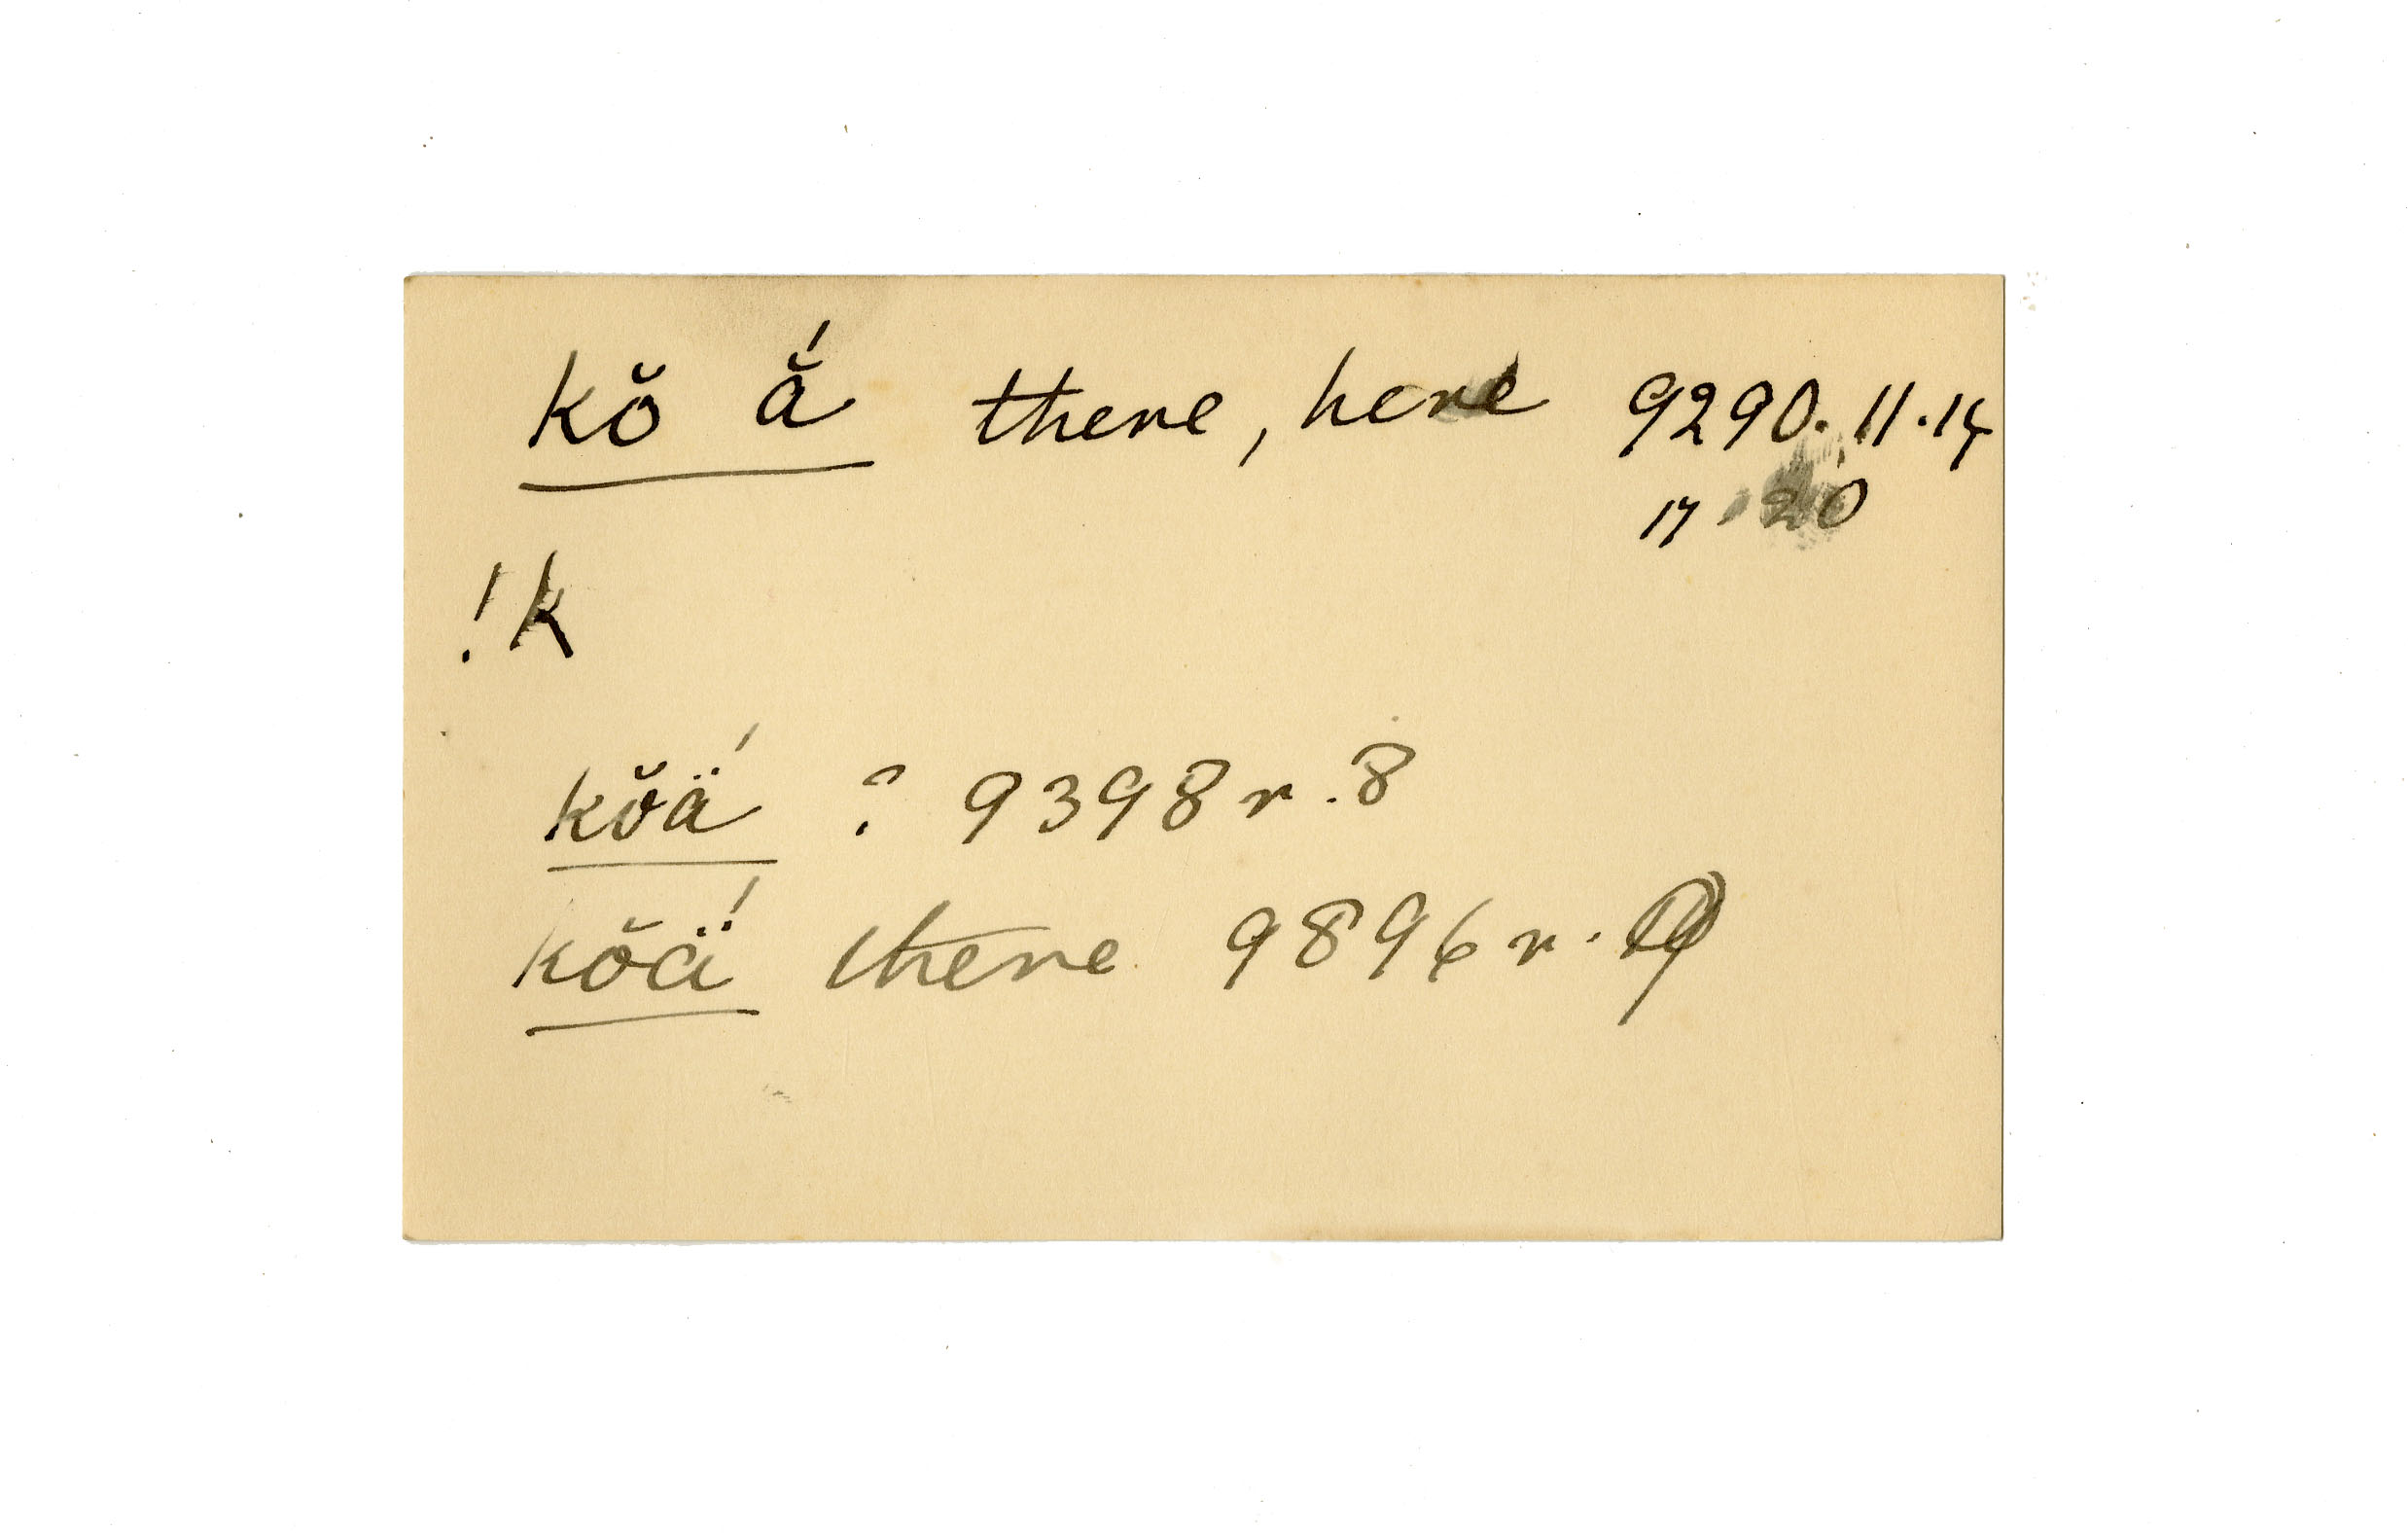 kŏ ắ there, here 9290. 11. 14
17 20
!k
kŏä́ ? 9398 r. 8
kŏä́ there 9896 r.